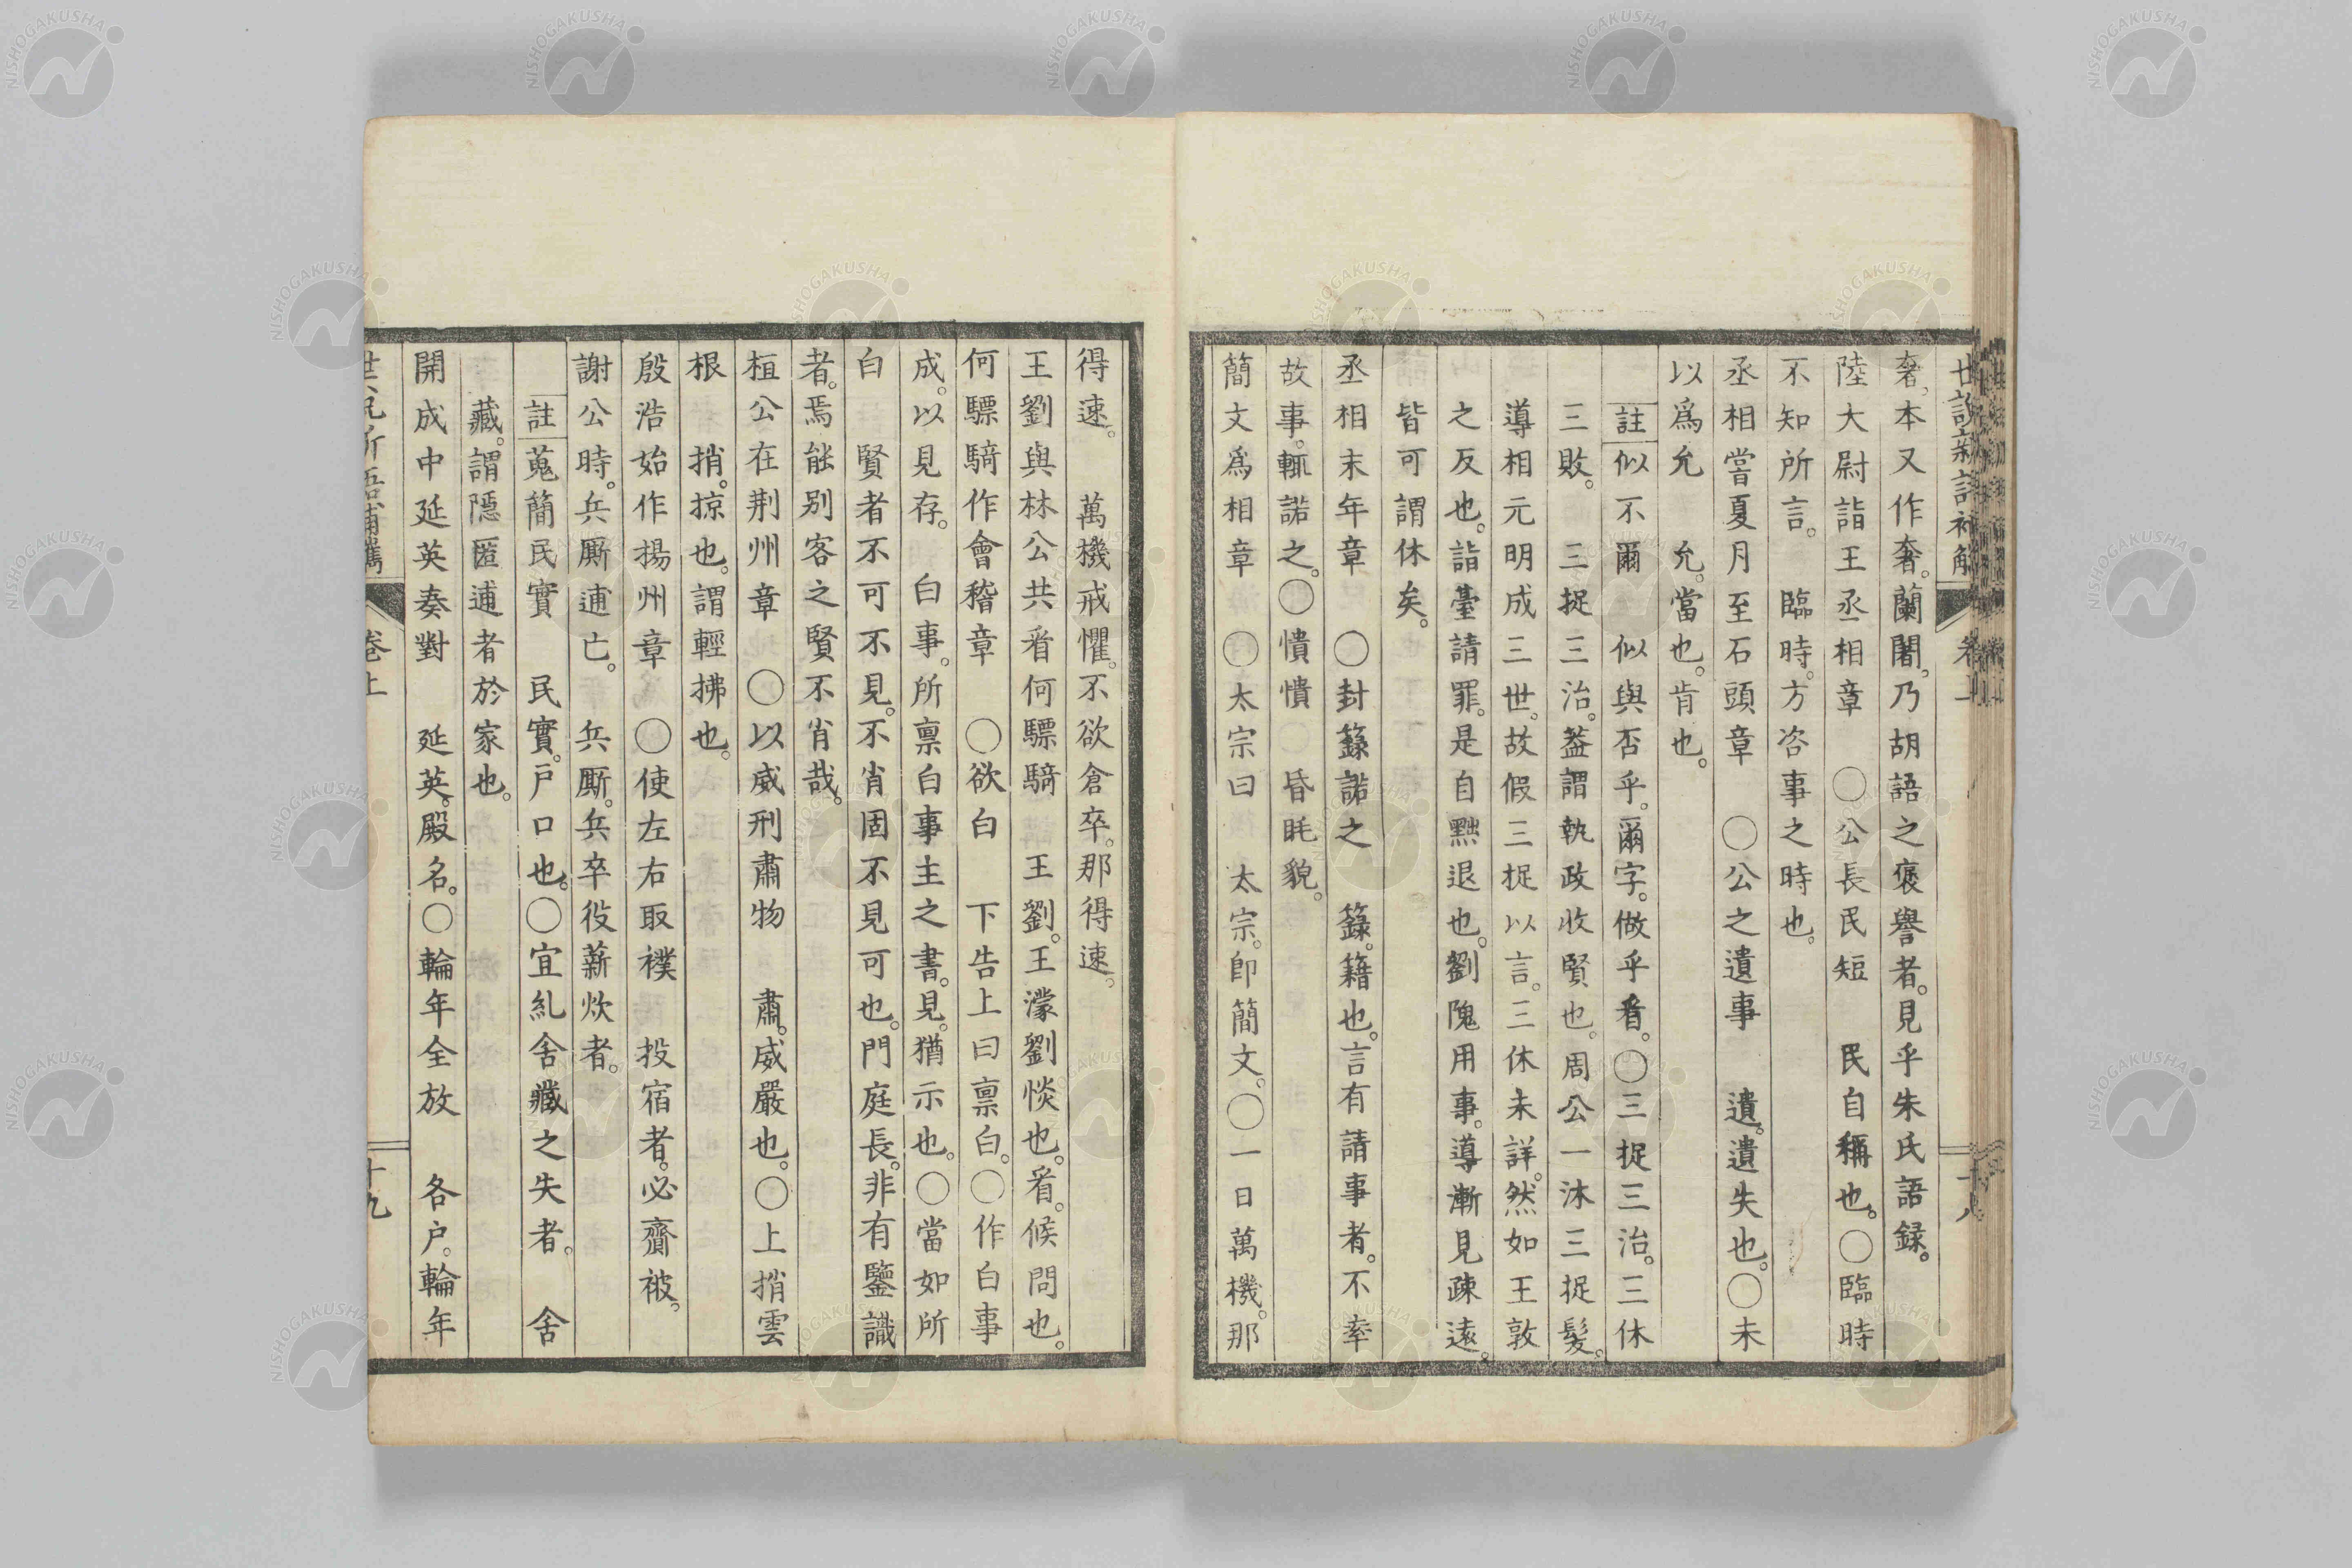 奢。本又作奢。蘭闍。乃胡語之褒譽者。見乎朱氏語録。
陸大尉詣王丞相章　〇公長民短　民自稱也。〇臨時
不知所言。　臨時。方咨事之時也。
丞相嘗夏月至石頭章　〇公之遺事　遺。遺失也。〇未
以爲允　允。當也。肯也。
註似不爾　似與否乎。爾字。做乎看。〇三捉三治。三休
三敗。　三捉三治。葢謂執政收賢也。周公一沐三捉髮。
導相元明成三世。故假三捉以言。三休未詳。然如王敦
之反也。詣臺請罪。是自黜退也。劉隗用事。導漸見疎遠。
皆可謂休矣。
丞相末年章　〇封籙諾之　籙。籍也。言有請事者。不率
故事。輒諾之。〇憒憒　昏眊貌。
簡文爲相章　〇太宗曰　太宗。即簡文。〇一日萬機。那
得速。　萬機戒懼。不欲倉卒。那得速。
王劉與林公共看何驃騎　王劉。王濛劉惔也。看。候問也。
何驃騎作會稽章　〇欲白　下告上曰禀白。〇作白事
成。以見存。　白事。所禀白事主之書。見。猶示也。〇當如所
白　賢者不可不見。不肖固不見可也。門庭長。非有鑒識
者。焉能别客之賢不肖哉。
桓公在荆州章　〇以威刑肅物　肅。威嚴也。〇上捎雲
根　捎。掠也。謂輕拂也。
殷浩始作揚州章　〇使左右取襆　投宿者。必齎被。
謝公時。兵厮逋亡。　兵厮。兵卒役薪炊者。
註蒐簡民實　民實。戸口也。〇宜糺舍藏之失者。　舍
藏。謂隱匿逋者於家也。
開成中延英奏對　延英。殿名。〇輪年全放　各戸。輪年
卷上
十九